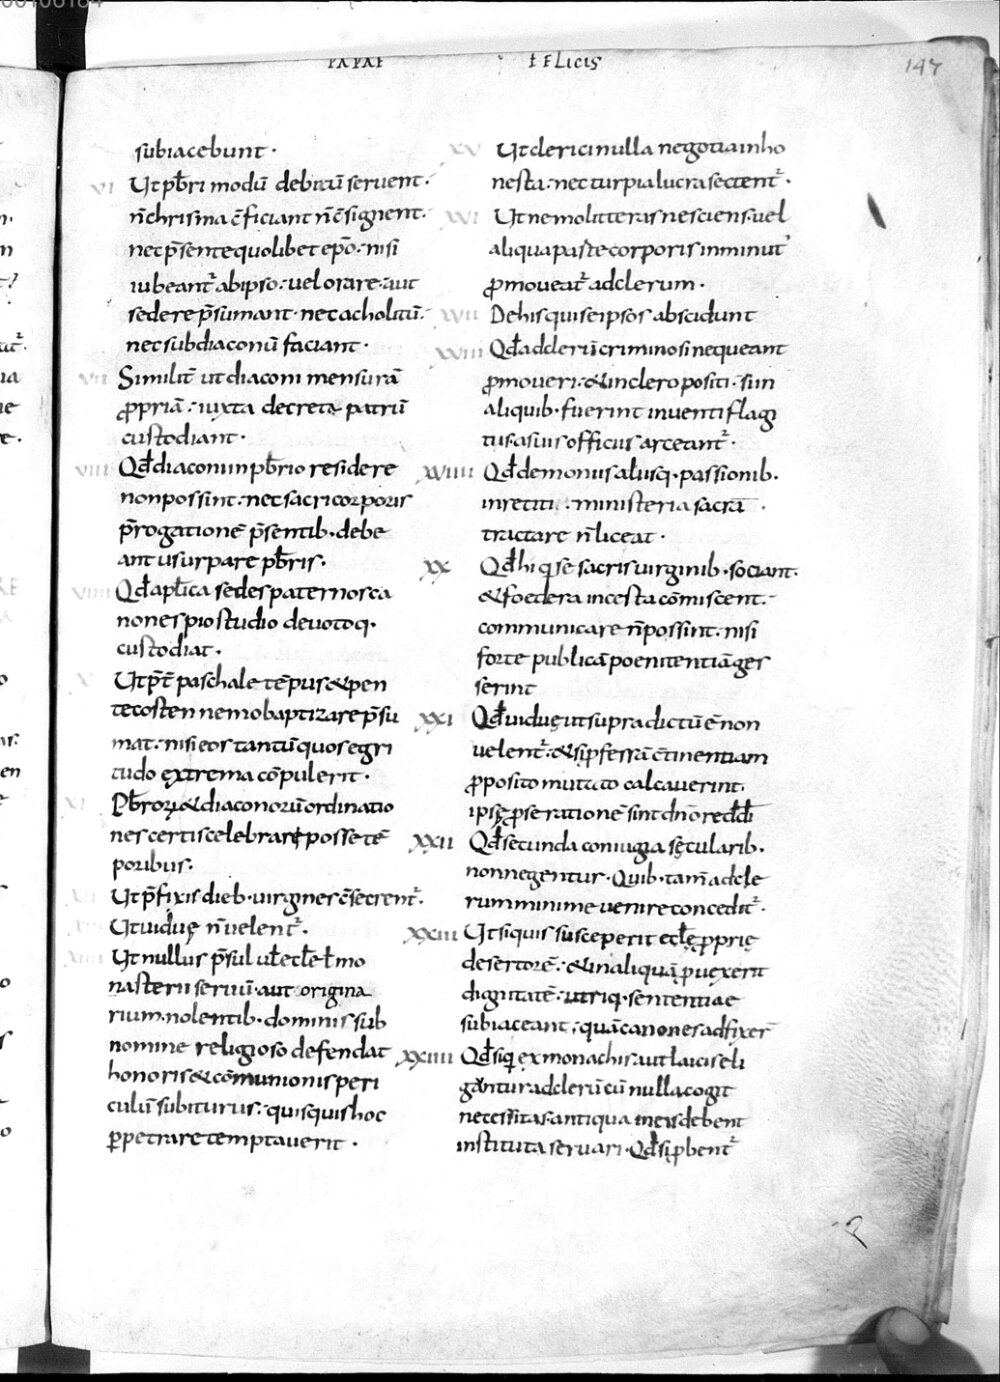 PAPAE FELICIS
147
subiacebunt·
VI Ut pb̄ri modū debitū seruent·
n̄ chrisma c̄ficiant n̄ c̄signent·
nec p̄sente quolibet ep̄o· nisi
iubeant᷒ ab ipso· uel orare· aut
sedere p̄sumant· nec acholitū·
nec subdiaconū faciant·
VII Similit̄ ut diaconi mensurā
ꝓpriā· iuxta decreta patrū
custodiant·
VIII Qd̄ diaconi in pb̄rio residere
non possint· nec sacri corporis
p̄rogationē p̄sentib· debe
ant usurpare pb̄ris·
VIIII Qd̄ apl̄ica sedes paternos ca
nones pio studio deuotoq·
custodiat·
X Ut p̄t paschale tēpus & pen
tecosten nemo baptizare p̄su
mat· nisi eos tantū quos egri
tudo extrema cōpulerit·
XI Pb̄rorꝝ & diaconorū ordinatio
nes certis celebrare posse tē
poribus·
XII Ut p̄fixis dieb· uirgines c̄secrent᷒·
XIII Ut uiduę n̄ uelent᷒·
XIIII Ut nullus p̄sul ul̄ ecl̄e ł mo
nasterii seruū· aut origina
rium· nolentib· dominis sub
nomine religioso defendat
honoris & cōmunionis peri
culū subiturus· quisquis hoc
ꝑpetrare temptauerit·
XV Ut clerici nulla negotia inho
nesta· nec turpia lucra sectent᷒·
XVI Ut nemo litteras nesciens· uel
aliqua parte corporis inminut᷒
ꝓmoueat᷒ ad clerum·
XVII De his qui se ipsos abscidunt
XVIII Qd̄ ad clerū criminosi nequeant
ꝓmoueri· & in clero positi· si in
aliquib· fuerint inuenti flagi
tiis· a suis officiis arceant᷒·
XVIIII Qd̄ demoniis aliisq· passionib·
inretiti· ministeria sacra
tractare n̄ liceat·
XX Qd̄ hi qi se sacris uirginib· sociant·
& foedera incesta cōmiscent·
communicare n̄ possint· nisi
forte publicā poenitentiā ges
serint
XXI Qd̄ uiduę ut supra dictū ē non
uelent᷒· & si ꝓfessā c̄tinentiam
ꝓposito mutato calcauerint·
ipsę ꝓ se rationē sint dn̄o redd̄i
XXII Qd̄ secunda coniugia sęcularib·
non negentur· Quib· tam̄ ad cle
rum minime uenire concedit᷒·
XXIII Ut si quis susceperit ecl̄ę ꝓprię
desertorē· & in aliquā ꝓuexerit
dignitatē· utriq· sententiae
subiaceant· quā canones adfixer̄
XXIIII Qd̄ si qi ex monachis aut laicis eli
gantur ad clerū cū nulla cogit
necessitas· antiqua in eis debent
instituta seruari· Qd̄ si ꝓbent᷒